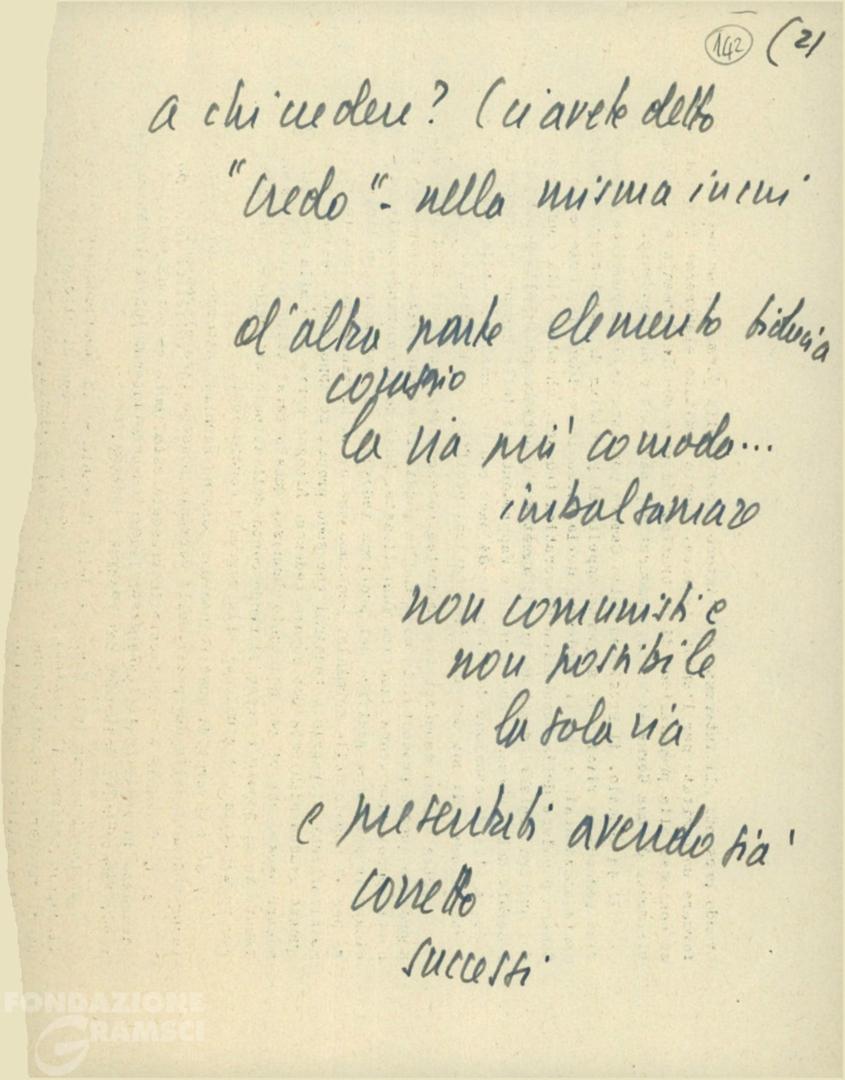 142 (2)
a chi credere? Ci avete detto
"Credo" - nella misura in cui
d'altra parte elemento fiducia
coraggio
la via più comoda...
imbalsamare
non comunisti e
non possibile
la sola via
e presentati avendo già
corretto
successi
FONDAZIONE
GRAMSCI